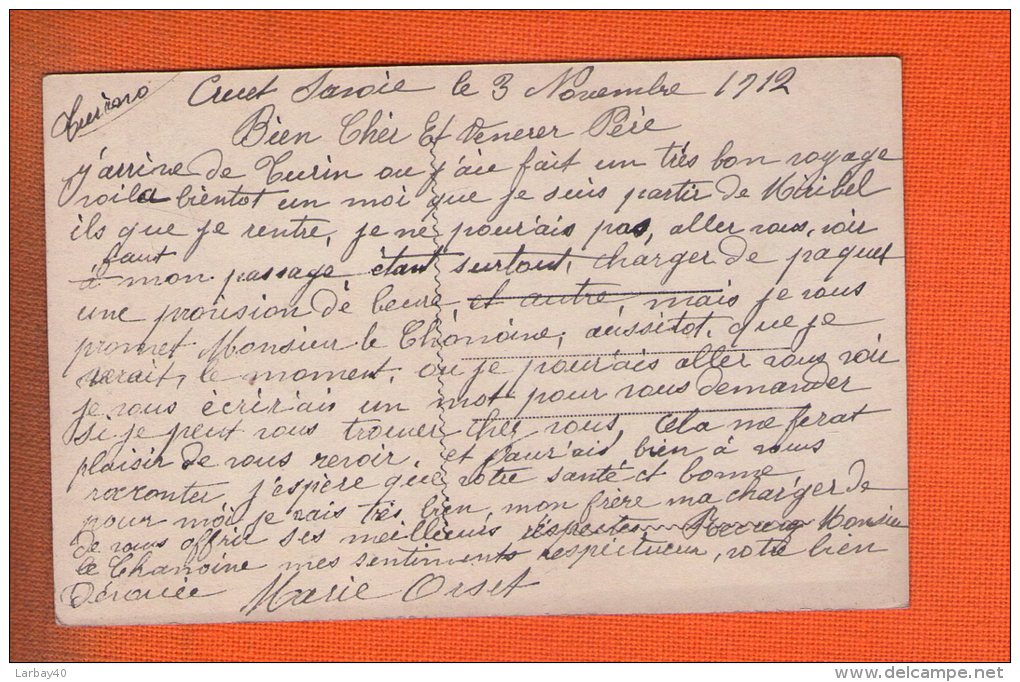 Cruet Savoie le 3 Novembre 1912
Bien Chèr Et Venerer Père
j'arrive de Turin ou j'ai fait un très bon voyage
voila bientot un moi que je suis partir de Miribel
ils faut que je rentre, je ne pourais pas, aller vous, voir
à mon passage étant surtout, charger de paquet
une provision de beure et autre, mais je vous
promet Monsieur le Chanoine, aussitot, que je
serait, le moment, ou je pourais aller vous voir
je vous écrirais un mot pour vous demander
si je peut vous trouver cher vous, Cela me ferat
plaisir de vous revoir, et j'aurais bien à vous
raconter, j'espère que votre santé et bonne
pour moi je vais très bien, mon frère ma charger de
de vous offrir ses meilleurs réspectes, Recevez Monsieur
le Chanoine mes sentiments respectueux, votre bien
Dévouée Marie Orset
Larbay40
http://www.delcampe.net